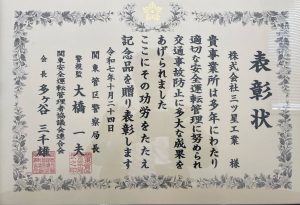 表彰状
株式会社三ツ星工業 様
貴事業所は多年にわたり
適切な安全運転管理に努められ
交通事故防止に多大な成果を
あげられました
ここにその功労をたたえ
記念品を贈り表彰します
令和七年十月二十四日
関東管区警察局長
警視監 大橋一夫
関東安全運転管理者協議会連合会
会長 多ケ谷三千雄